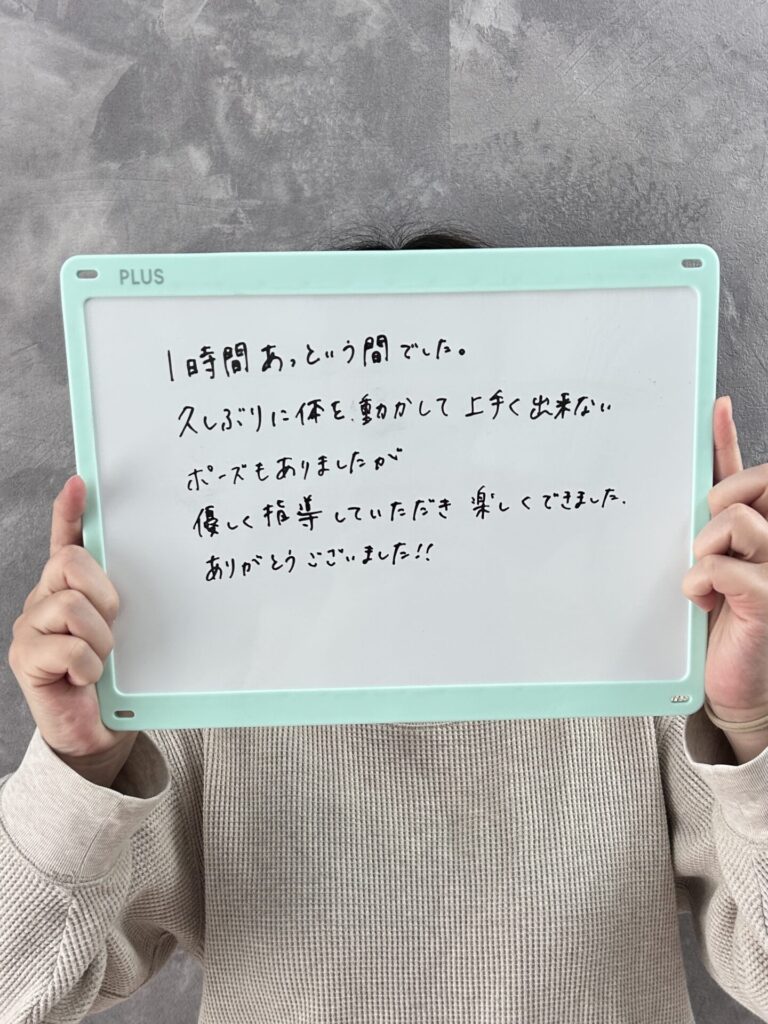 PLUS
1時間あっという間でした。
久しぶりに体を動かして上手く出来ない
ポーズもありましたが
優しく指導していただき楽しくできました.
ありがとうございました!!